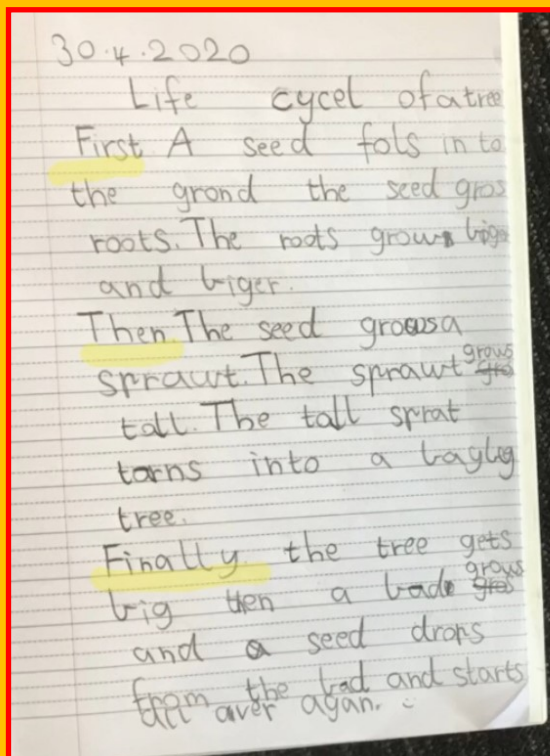 30.4.2020
Life cycel of a tree
First A seed fols in to
the grond the seed gros
roots. The roots grows biger
and biger.
Then The seed growsa
sprawt. The sprawt grows
tall. The tall sprat
tarns into a
tree.
Finally the tree gets
big then a grows
and a seed drops
from the and starts
all aver agan.